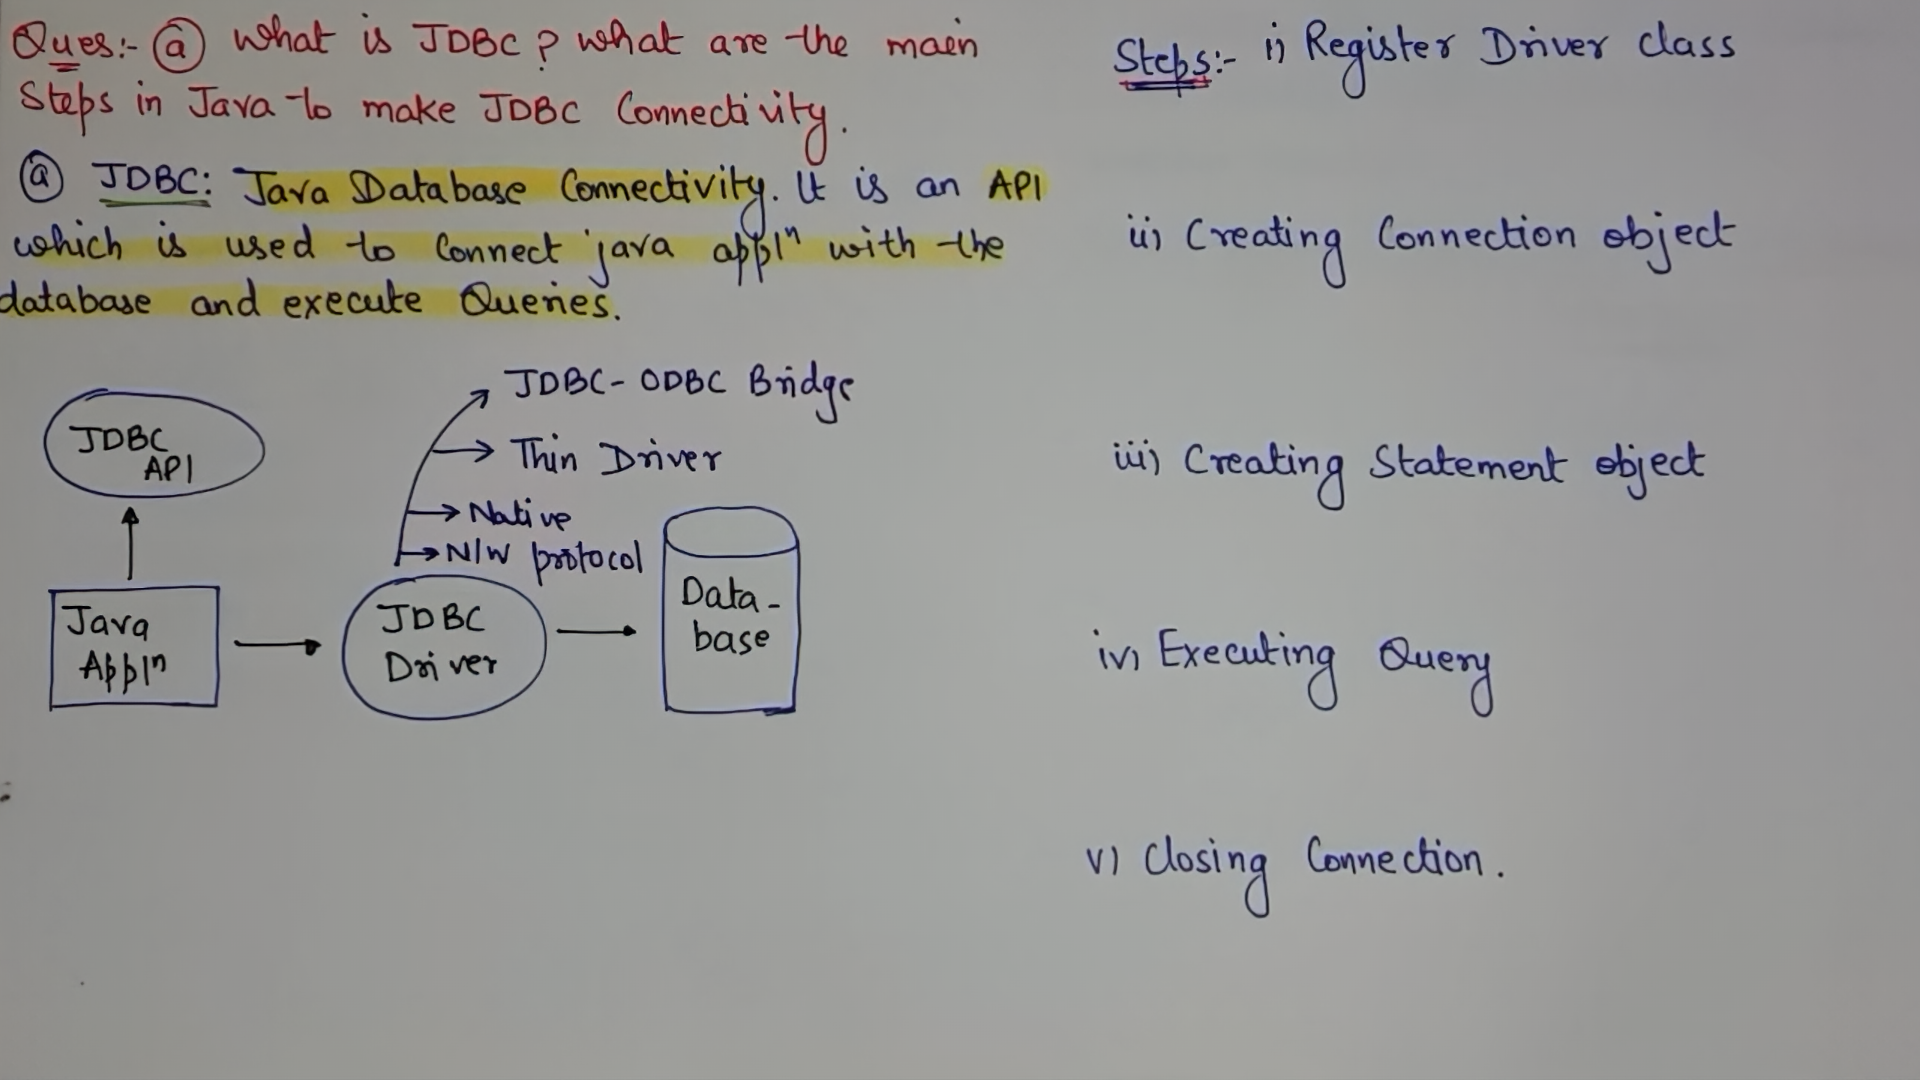 Ques:- ⓐ What is JDBC? What are the main
Steps in Java to make JDBC Connectivity.
ⓐ JDBC: Java Database Connectivity. It is an API
which is used to connect java applⁿ with the
database and execute Queries.
JDBC-ODBC Bridge
Thin Driver
Native
N/W protocol
JDBC
API
Java
Applⁿ
JDBC
Driver
Data-
base
Steps:- i) Register Driver class
ii) Creating Connection object
iii) Creating Statement object
iv) Executing Query
v) Closing Connection.